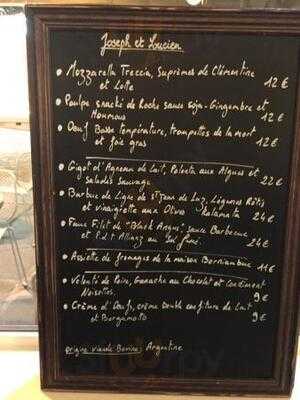 Joseph et Lucien
• Mozzarella Treccia, Suprêmes de Clémentine
et Lotte 12 €
• Poulpe snacké de Roche sauce soja-Gingembre et
Houmous 12 €
• Oeuf Basse Température, trompettes de la mort
et foie gras 12 €
• Gigot d'Agneau de Lait, Polenta aux Algues et
salades sauvage 22 €
• Barbue de Ligne de St Jean de Luz, Légumes Rôtis
et vinaigrette aux Olives Kalamata 24 €
• Faux Filet de "Black Angus" sauce Barbecue
et au Sel fumé. 24 €
• Assiette de fromages de la maison Borniambuc 11 €
• Velouté de Poire, Ganache au Chocolat et Condiment
Noisettes. 9 €
• Crème d'Oeufs, crème Double confiture de Lait
et Bergamote 9 €
origine viande Bovine : Argentine